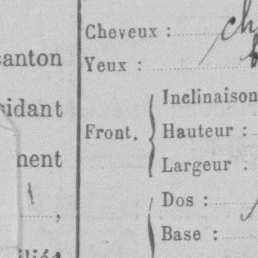 anton
sidant
nent
,
Cheveux : ch
Yeux :
Front.
Inclinaison
Hauteur :
Largeur :
Dos :
Base :